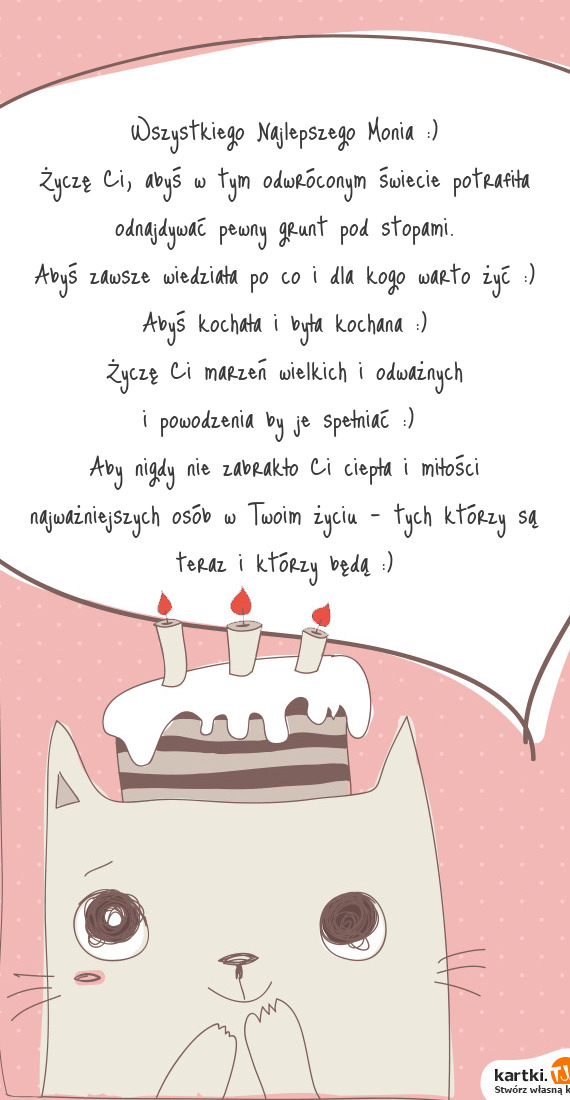 Wszystkiego Najlepszego Monia :)
Życzę Ci, abyś w tym odwróconym świecie potrafiła
odnajdywać pewny grunt pod stopami.
Abyś zawsze wiedziała po co i dla kogo warto żyć :)
Abyś kochała i była kochana :)
Życzę Ci marzeń wielkich i odważnych
i powodzenia by je spełniać :)
Aby nigdy nie zabrakło Ci ciepła i miłości
najważniejszych osób w Twoim życiu - tych którzy są
teraz i którzy będą :)
kartki.TJ
Stwórz własną k